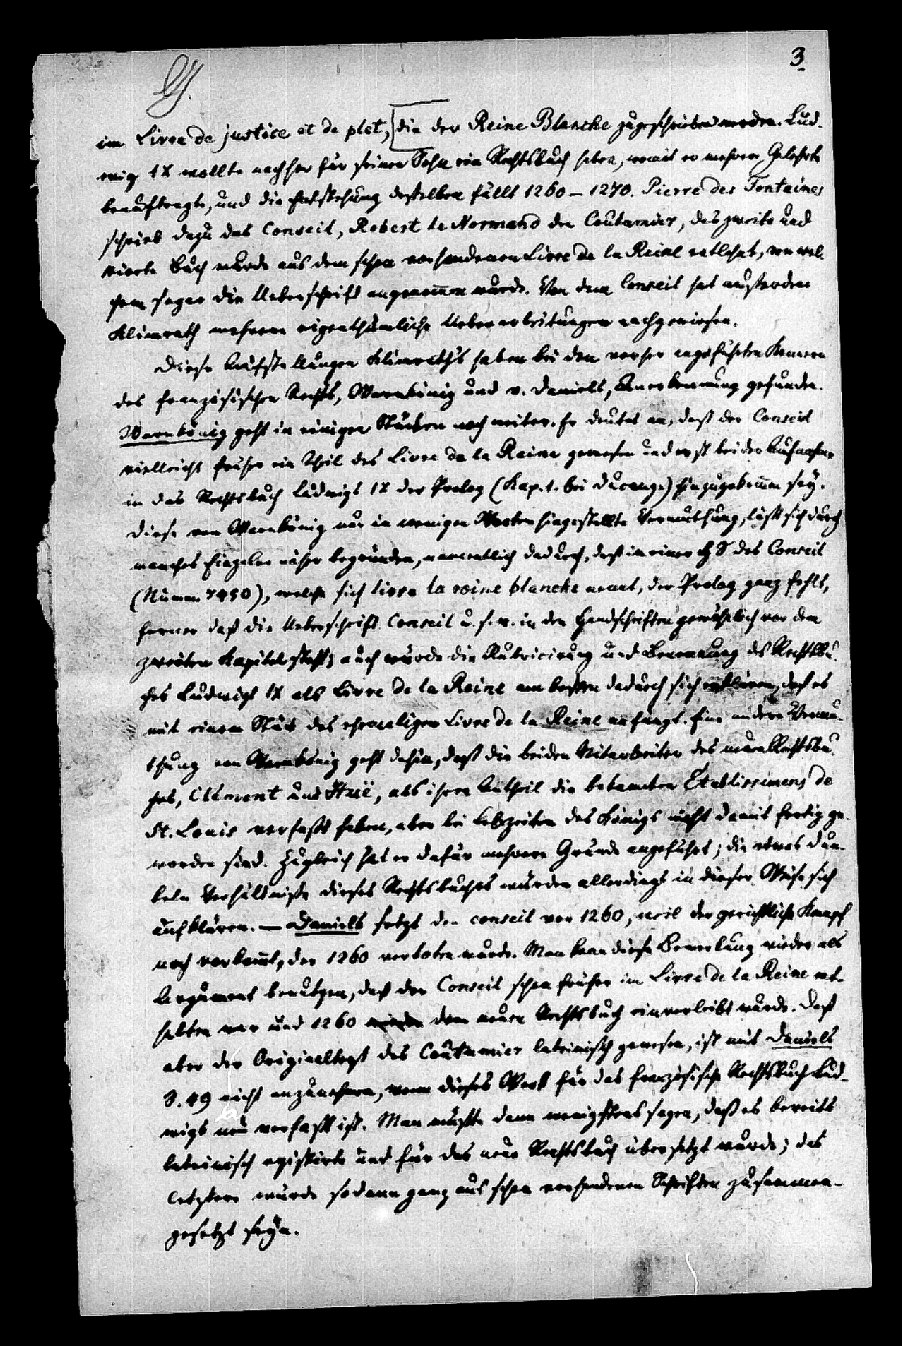 3
im Livre de justice et de plet, [die der Reine Blanche zugeschrieben werden. Lud-
wig IX wollte nachher für seinen Sohn ein Rechtsbuch haben, womit er mehrere Gelehrte
beauftragte, und die Entstehung desselben fällt 1260 – 1270. Pierre des Fontaines
schrieb dazu das Conseil, Robert le Normand den Coutumier, das zweite und
vierte Buch wurde aus dem schon vorhandenen Livre de la Reine entlehnt, von wel-
chem sogar die Ueberschrift angenommen wurde. Von dem Conseil hat ausserdem
Klimrath mehrere eigenthümliche Ueberarbeitungen nachgewiesen.
Diese Aufstellungen Klimrath's haben bei den vorher angeführten Kennern
des französischen Rechts, Warnkönig und v. Daniels, Anerkennung gefunden.
Warnkönig geht in einigen Stücken noch weiter. Er deutet an, daß der Conseil
vielleicht früher ein Theil des Livre de la Reine gewesen und erst bei der Aufnahme
in das Rechtsbuch Ludwigs IX der Prolog (Kap. 1. bei Ducange) hinzugekommen sey.
Diese von Warnkönig nur in wenigen Worten hingestellte Vermuthung, läßt sich durch
manches Einzelne näher begründen, namentlich dadurch, daß in einer HS des Conseil
(Numm. 7450), welche sich livre la roine blanche nennt, der Prolog ganz fehlt,
ferner daß die Ueberschrift Conseil u.s.w. in den Handschriften gewöhnlich vor dem
zweiten Kapitel steht; auch würde die Rubricirung und Benennung des Rechtsbu-
ches Ludwigs IX als Livre de la Reine am besten dadurch sich erklären, daß es
mit einem Stück des ehemaligen Livre de la Reine anfängt. Eine andere Vermu-
thung von Warnkönig geht dahin, daß die beiden Mitarbeiter des neuen Rechtsbu-
ches, Clement und Huë, als ihren Antheil die bekannten Etablissemens de
St. Louis verfaßt haben, aber bei Lebzeiten des Königs nicht damit fertig ge-
worden sind. Zugleich hat er dafür mehrere Gründe angeführt; die etwas dun-
keln Verhältnisse dieses Rechtsbuches würden allerdings in dieser Weise sich
aufklären. — Daniels setzt den conseil vor 1260, weil der gerichtliche Kampf
noch vorkommt, der 1260 verboten wurde. Man kann diese Bemerkung wieder als
Argument benutzen, daß der Conseil schon früher im Livre de la Reine ent-
halten war und 1260 dem neuen Rechtsbuch einverleibt wurde. Daß
aber der Originaltext des Coutumier lateinisch gewesen, ist mit Daniels
S. 49 nicht anzunehmen, wenn dieses Werk für das französische Rechtsbuch Lud-
wigs neu verfaßt ist. Man müßte dann wenigstens sagen, daß es bereits
lateinisch existirte und für das neue Rechtsbuch übersetzt wurde; das
letztere würde sodann ganz aus schon vorhandenen Schriften zusammen-
gesetzt seyn.